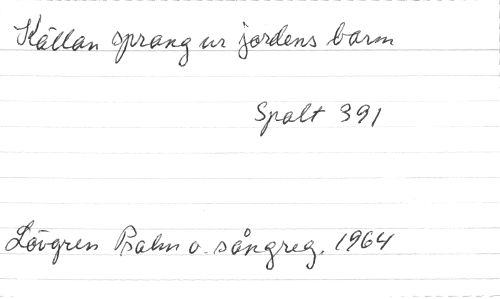 Källan sprang ur jordens barm
Spalt 391
Lövgren Psalm o. sångreg. 1964